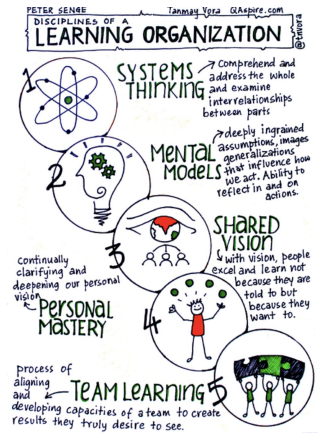 PETER SENGE
Tanmay Vora QAspire.com
DISCIPLINES OF A
LEARNING ORGANIZATION
@tnvora
1
SYSTEMS
THINKING
Comprehend and
address the whole
and examine
interrelationships
between parts
2
MENTAL
MODELS
deeply ingrained
assumptions, images
generalizations
that influence how
we act. Ability to
reflect in and on
actions.
3
SHARED
VISION
with vision, people
excel and learn not
because they are
told to but
because they
want to.
4
continually
clarifying and
deepening our personal
vision
PERSONAL
MASTERY
5
process of
aligning
and
TEAM LEARNING
developing capacities of a team to create
results they truly desire to see.